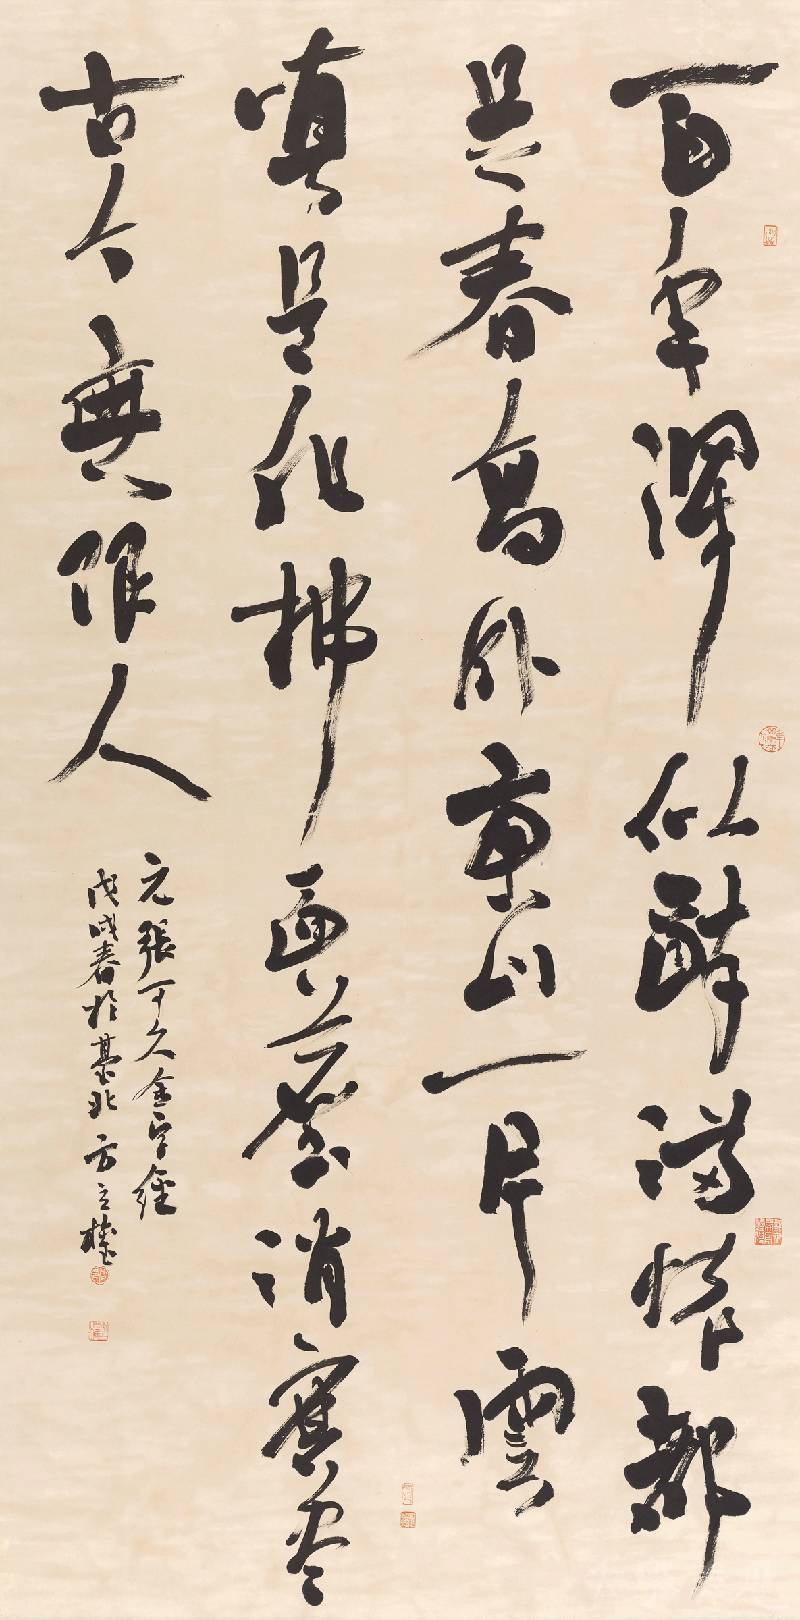 百年渾似醉滿懷都
是春高臥東山一片雲
嗔是非拂面塵消磨盡
古今無限人
元張可久金字經
戊戌春於臺北方